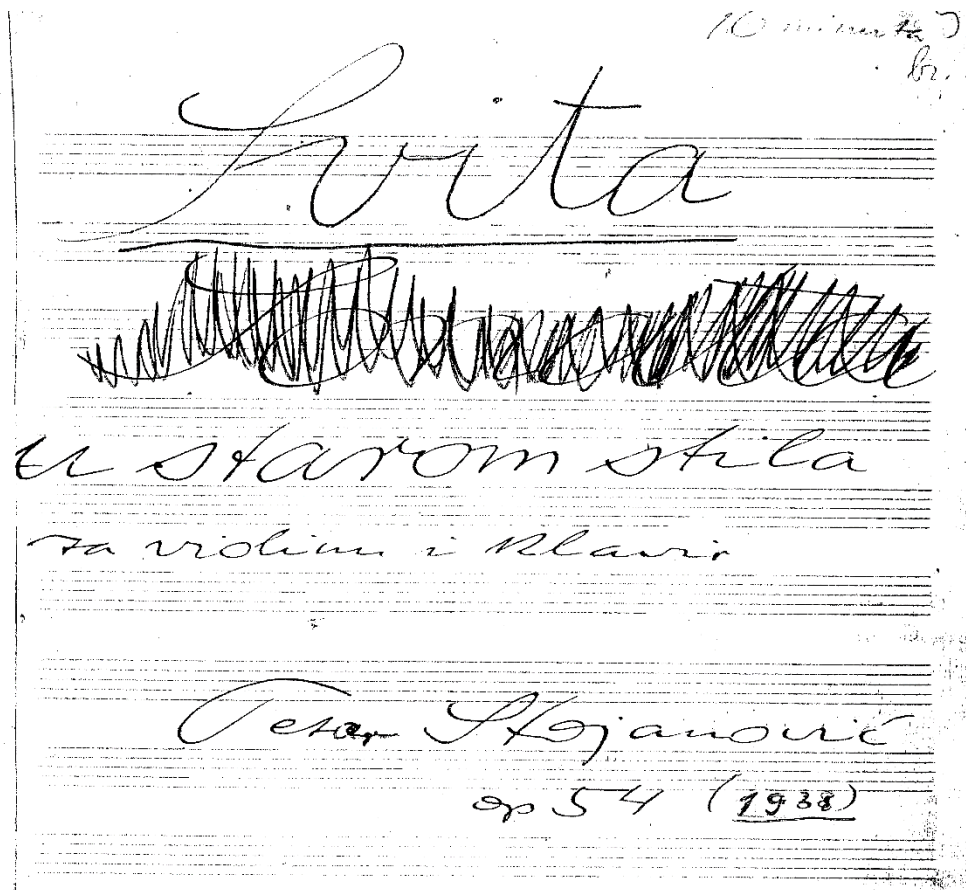 10 minuta
br.
Svita
u starom stilu
za violinu i klavir
Petar Stojanović
op 54 (1938)